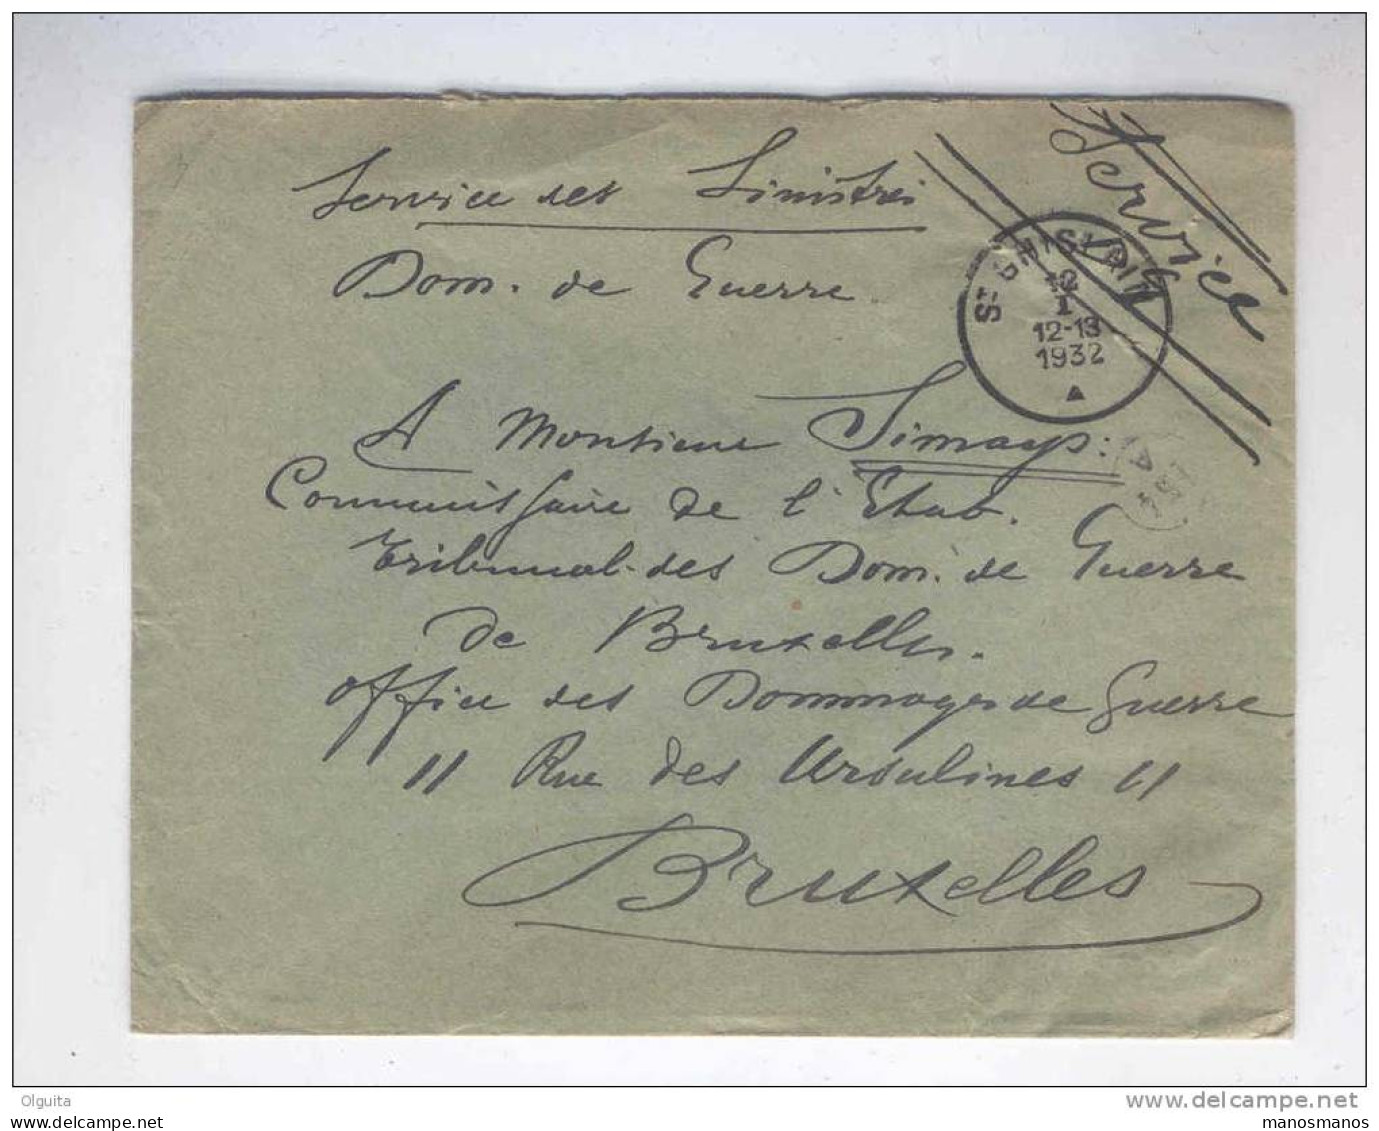 Service des Sinistrés
Dom. de Guerre
Service
ST GHISLAIN
12
I
12-13
1932
A Monsieur Simays:
Commissaire de l'Etat.
Tribunal des Dom. de Guerre
de Bruxelles.
Office des Dommages de Guerre
11 Rue des Ursulines 11
Bruxelles
Olguita
delcampe.net
manosmanos